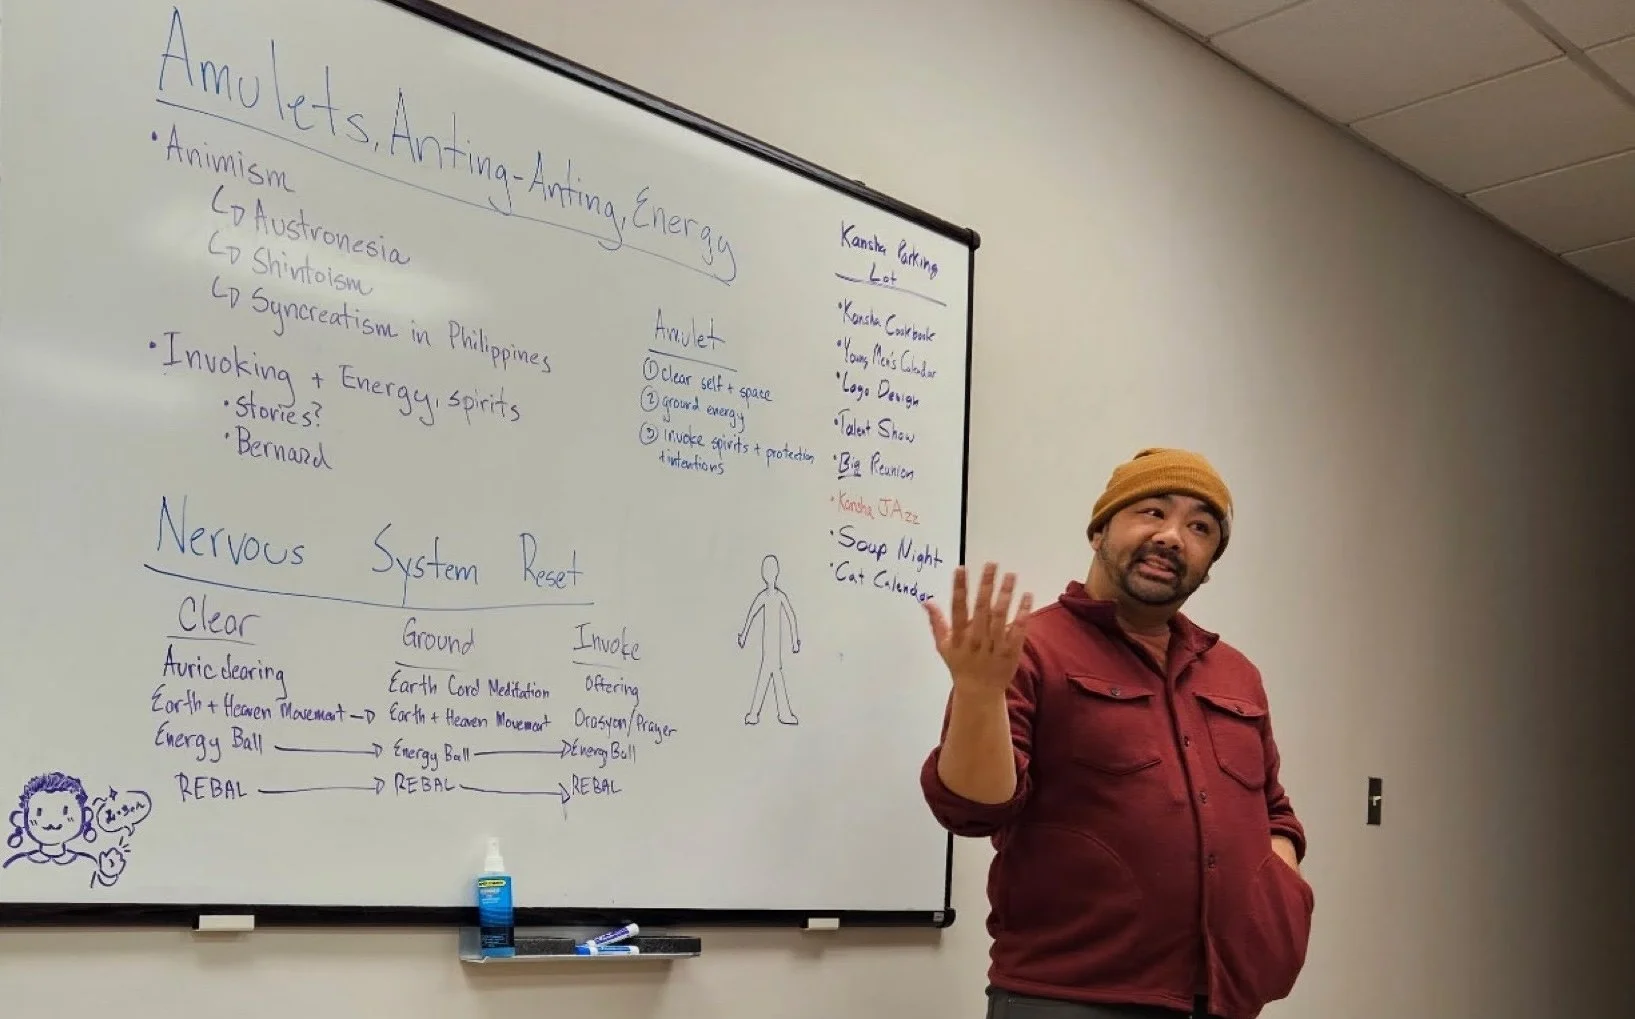 Amulets, Anting-Anting, Energy
• Animism
↳ Austronesia
↳ Shintoism
↳ Syncreatism in Philippines
• Invoking + Energy, spirits
• Stories?
• Bernard
Amulet
① clear self + space
② ground energy
③ invoke spirits + protection
+ intentions
Kansha Parking
Lot
• Kansha Cookbook
• Young Men's Calendar
• Logo Design
• Talent Show
• Big Reunion
• Kansha JAzz
• Soup Night
• Cat Calendar
Nervous System Reset
Clear
Auric clearing
Earth + Heaven Movement →
Energy Ball →
REBAL →
Ground
Earth Cord Meditation
Earth + Heaven Movement
Energy Ball →
REBAL →
Invoke
Offering
Orasyon/Prayer
Energy Ball
REBAL